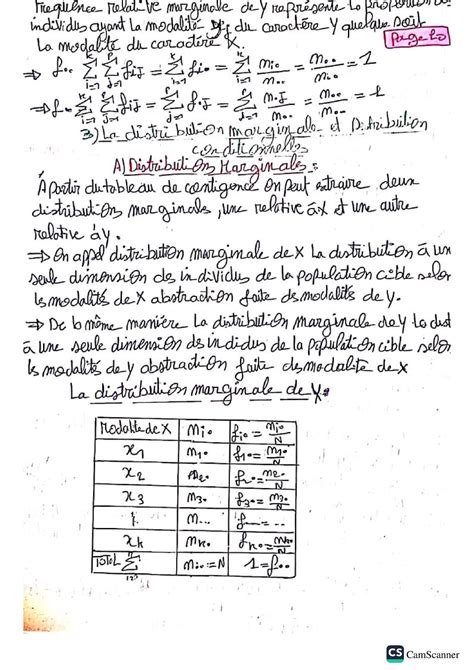 frequence relative marginale de y représente la proportion des
individus ayant la modalité yj du caractère y quelque soit
la modalité du caractère X.
page 10
⇒ f.. = Σ Σ fij = Σ fi. = Σ ni./n.. = n../n.. = 1
⇒ f.. = Σ Σ fij = Σ f.j = Σ n.j/n.. = n../n.. = 1
3) La distribution marginale et Distribution
conditionnelles
A) Distributions Marginales :
À partir du tableau de contigence on peut extraire deux
distributions marginals, une relative à x et une autre
relative à y.
⇒ On appel distribution marginale de x La distribution à un
seule dimension des individus de la population cible selon
les modalités de X abstraction faite des modalités de y.
⇒ De la même manière La distribution marginale de y
à une seule dimension des individus de la population cible selon
les modalité de y abstraction faite des modalité de x
La distribution marginale de X.
Modalité de X ni. fi. = ni./N
x1 n1. f1. = n1./N
x2 n2. f2. = n2./N
x3 n3. f3. = n3./N
n... f... = ...
xk nk. fk. = nk./N
TOTAL Σ n.. = N 1 = f..
CS CamScanner